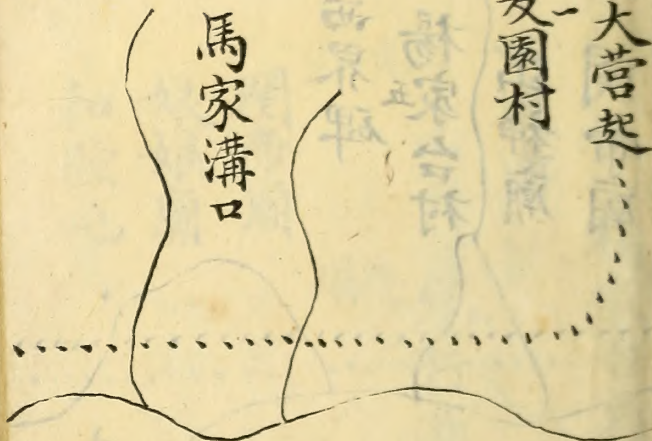 大营起
园村
馬家溝口